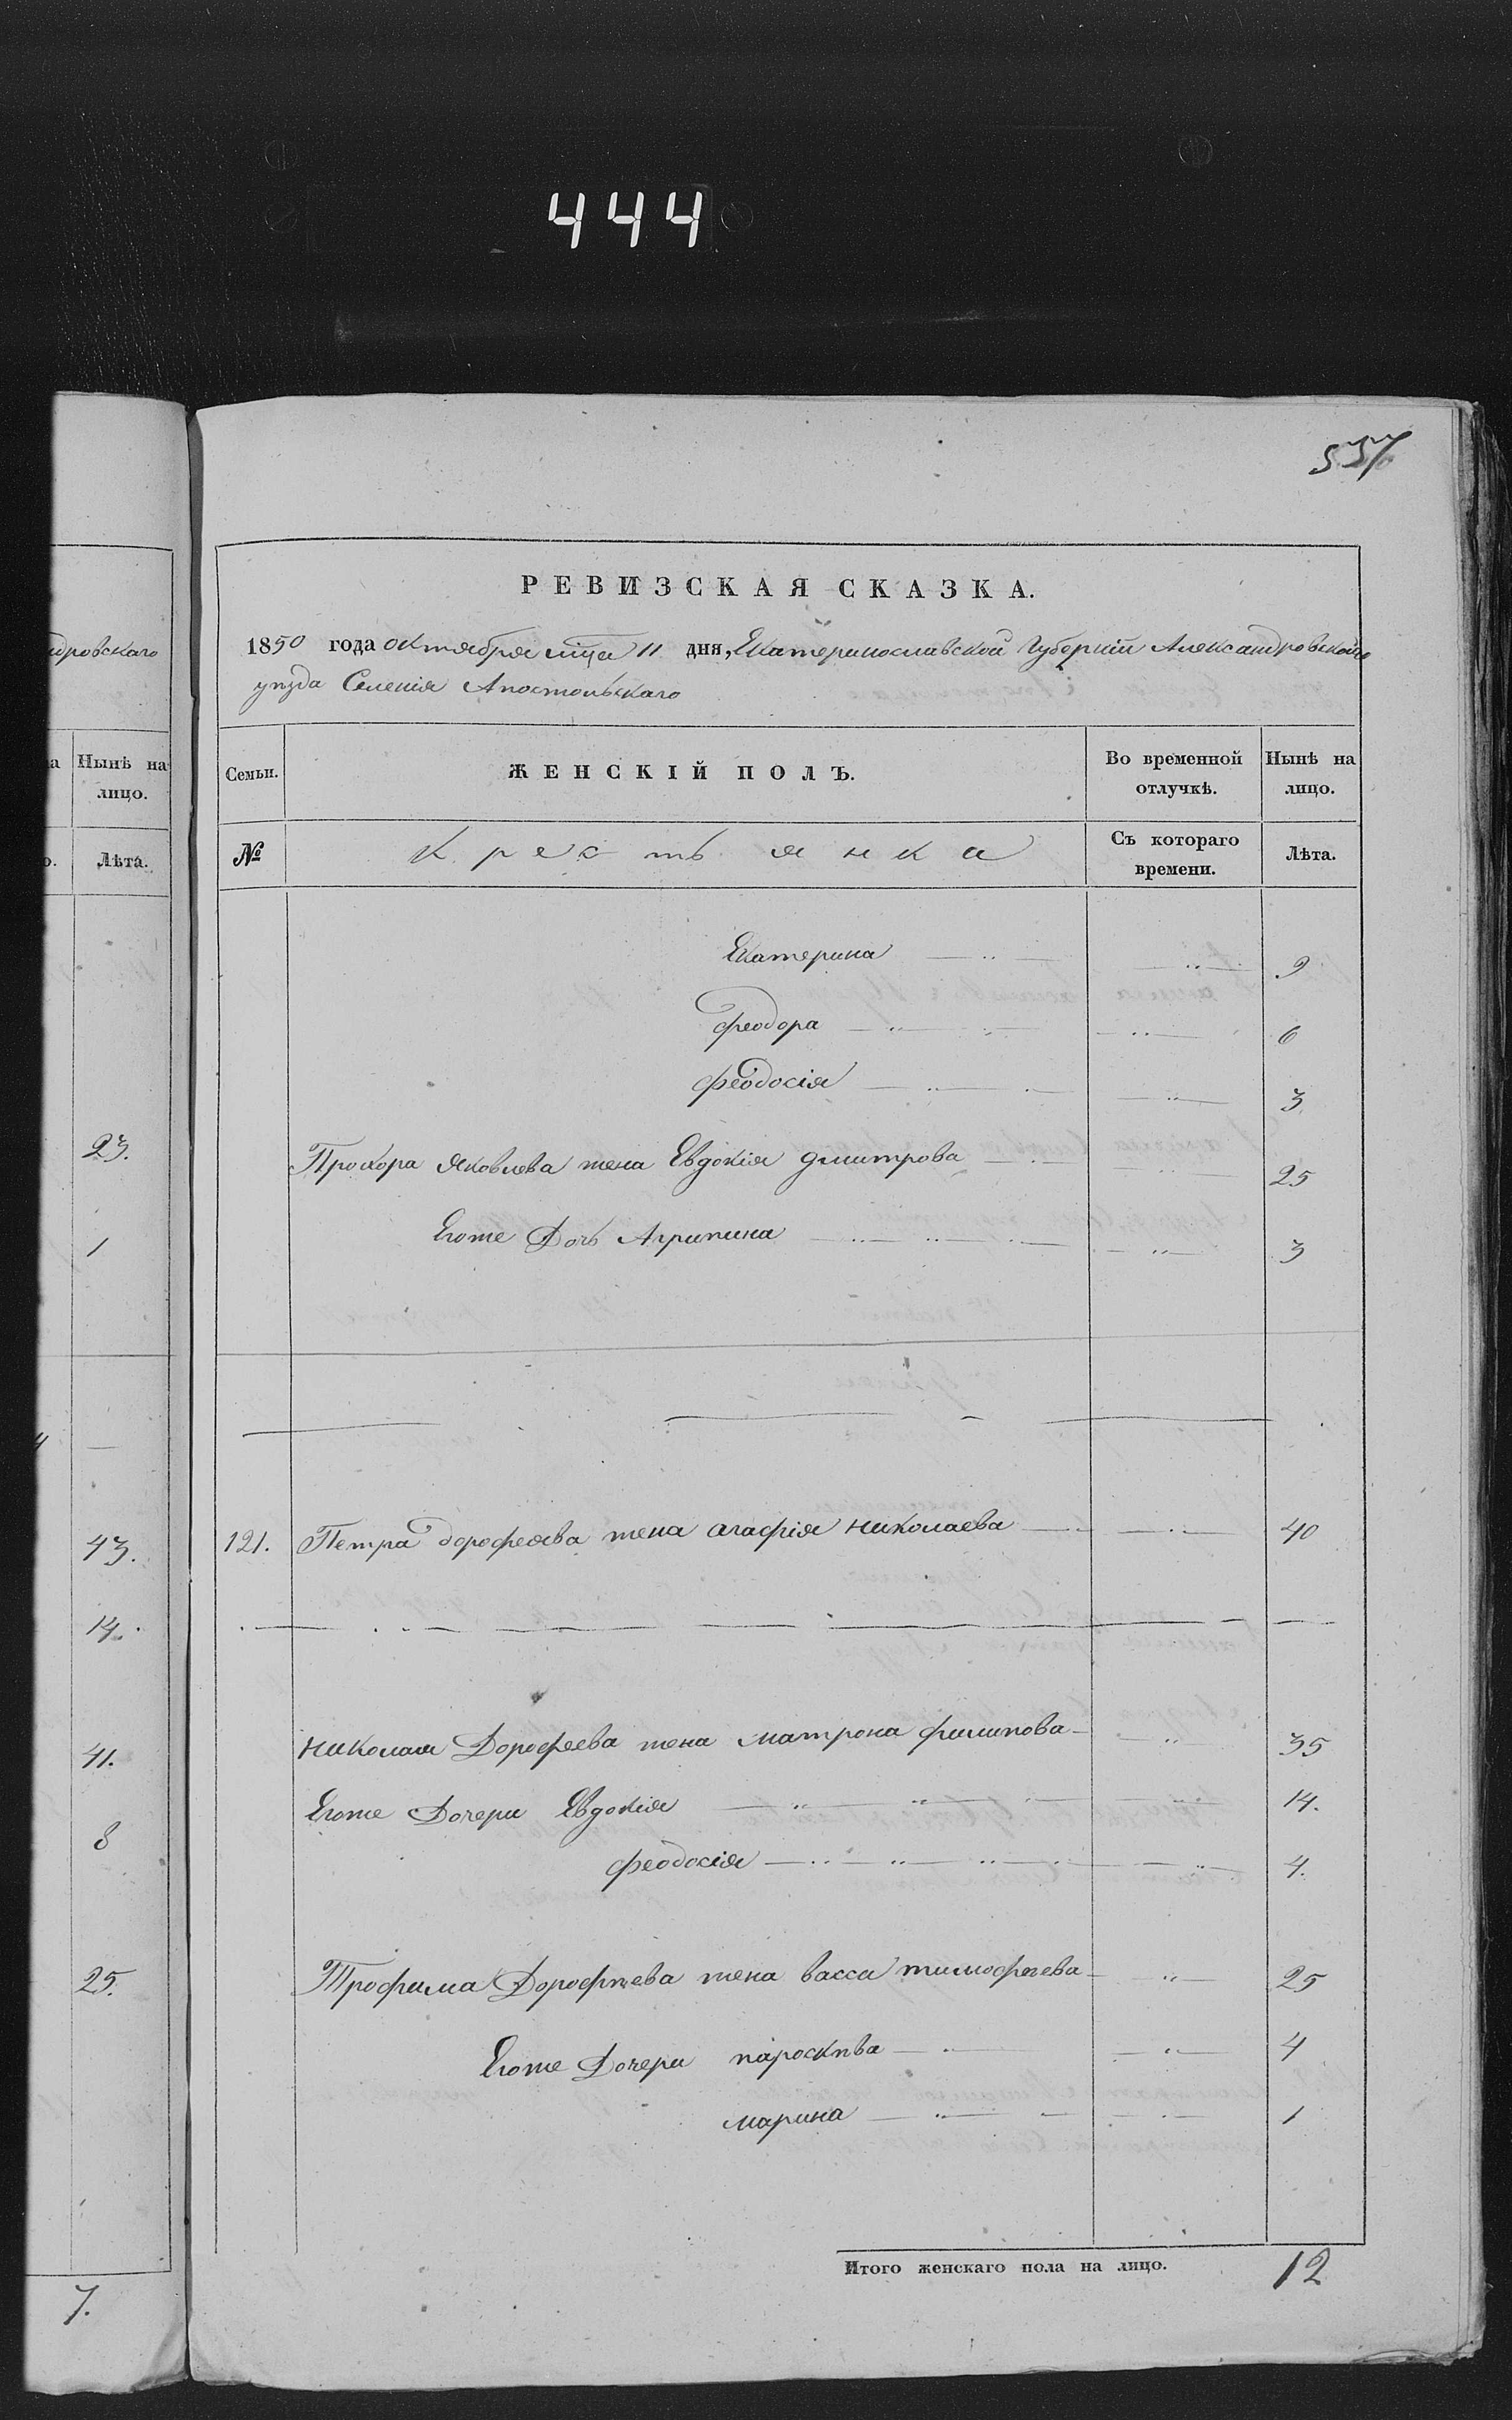 444
557
дровскаго
а Нынѣ на
лицо.
о. Лѣта.
23.
1
43.
14.
41.
8
25.
7.
РЕВИЗСКАЯ СКАЗКА.
1850 года октября мца 11 дня, Екатеринославской Губерніи Александровского
уѣзда Селенія Апостольскаго
Семьи. ЖЕНСКІЙ ПОЛЪ. Во временной отлучкѣ. Нынѣ на лицо.
№ Крестьянка Съ котораго времени. Лѣта.
Екатерина 9
феодора 6
феодосія 3
Прохора Яковлева жена Евдокія дмитрова 25
Егоже Дочь Агрипина 3
121. Петра дорофеева жена агафія николаева 40
николая Дорофеева жена матрона филипова 35
Егоже Дочери Евдокія 14.
феодосія 4.
Трофима Дорофѣева жена васса тимофеева 25
Егоже Дочери пароскѣва 4
марина 1
Итого женскаго пола на лицо. 12